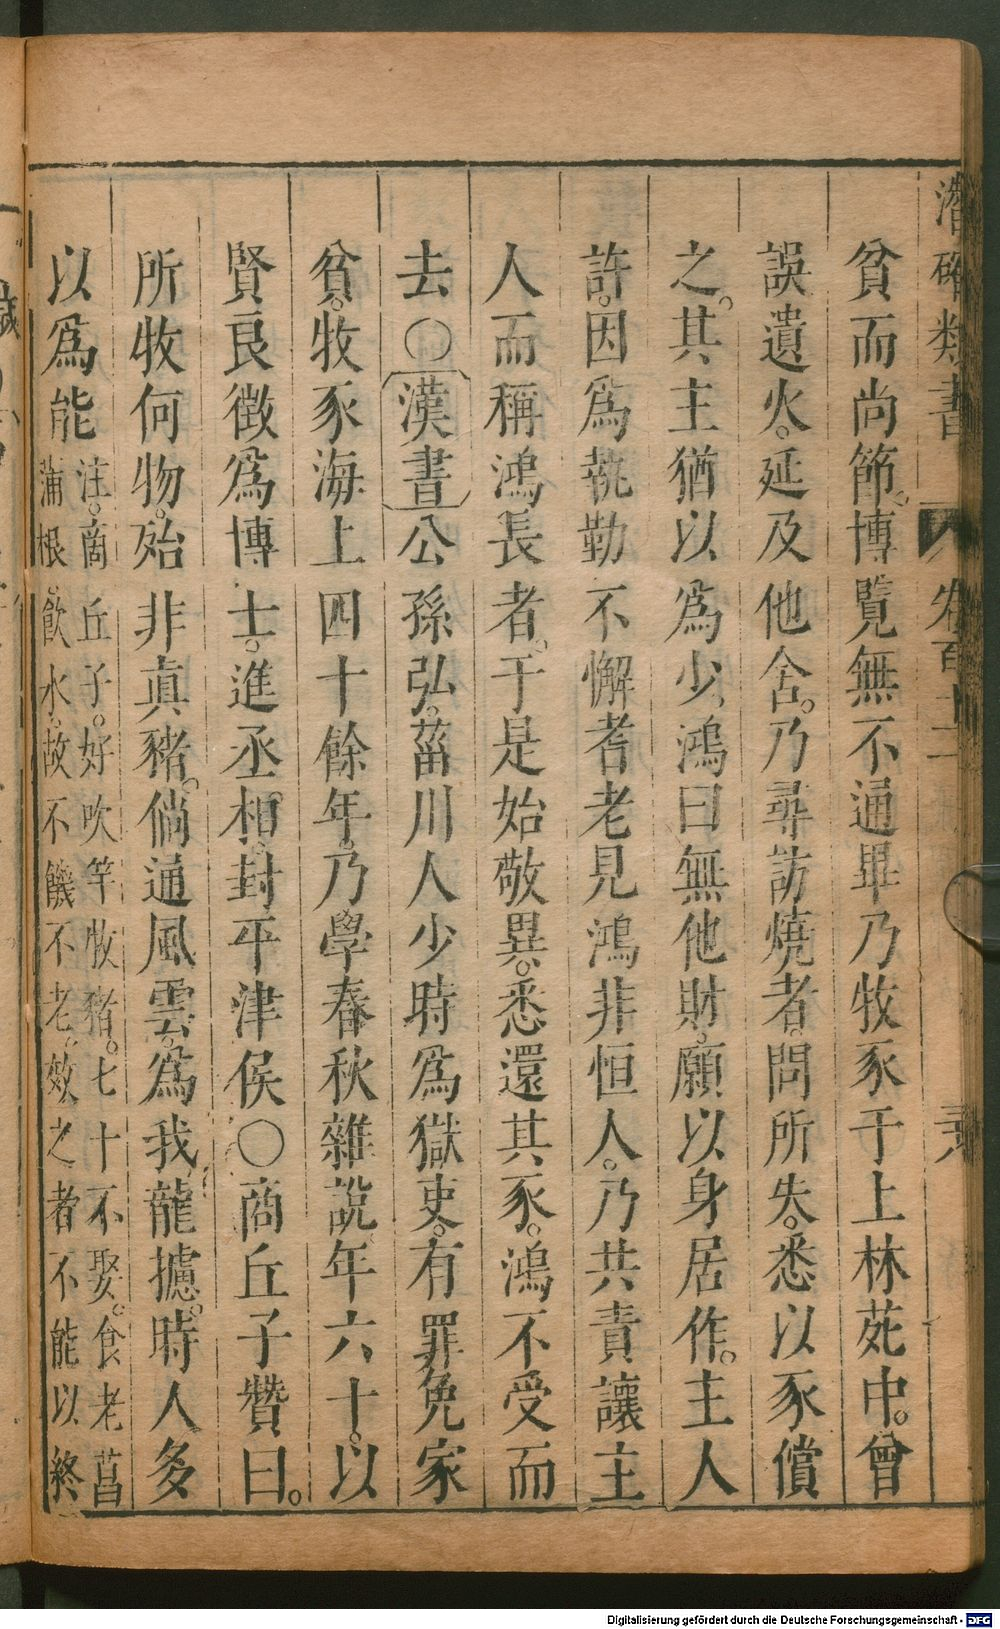 潛確類書 卷百十二
貧而尚節。博覽無不通畢乃牧豕于上林苑中。曾
誤遺火。延及他舍。乃尋訪燒者。問所失。悉以豕償
之。其主猶以爲少、鴻曰無他財。願以身居作。主人
許。因爲執勤不懈耆老見鴻非恒人。乃共責讓主
人而稱鴻長者。于是始敬異。悉還其豕。鴻不受而
去〇漢書公孫弘。菑川人少時爲獄吏。有罪免家
貧。牧豕海上四十餘年。乃學春秋雜說。年六十。以
賢良徵爲博士。進丞相。封平津侯〇商丘子贊曰。
所牧何物。殆非眞豬。倘通風雲。爲我龍攄。時人多
以爲能
注。商丘子。好吹竽牧豬。七十不娶。食老菖
蒲根。飮水。故不饑不老。效之者不能以終
Digitalisierung gefördert durch die Deutsche Forschungsgemeinschaft - DFG